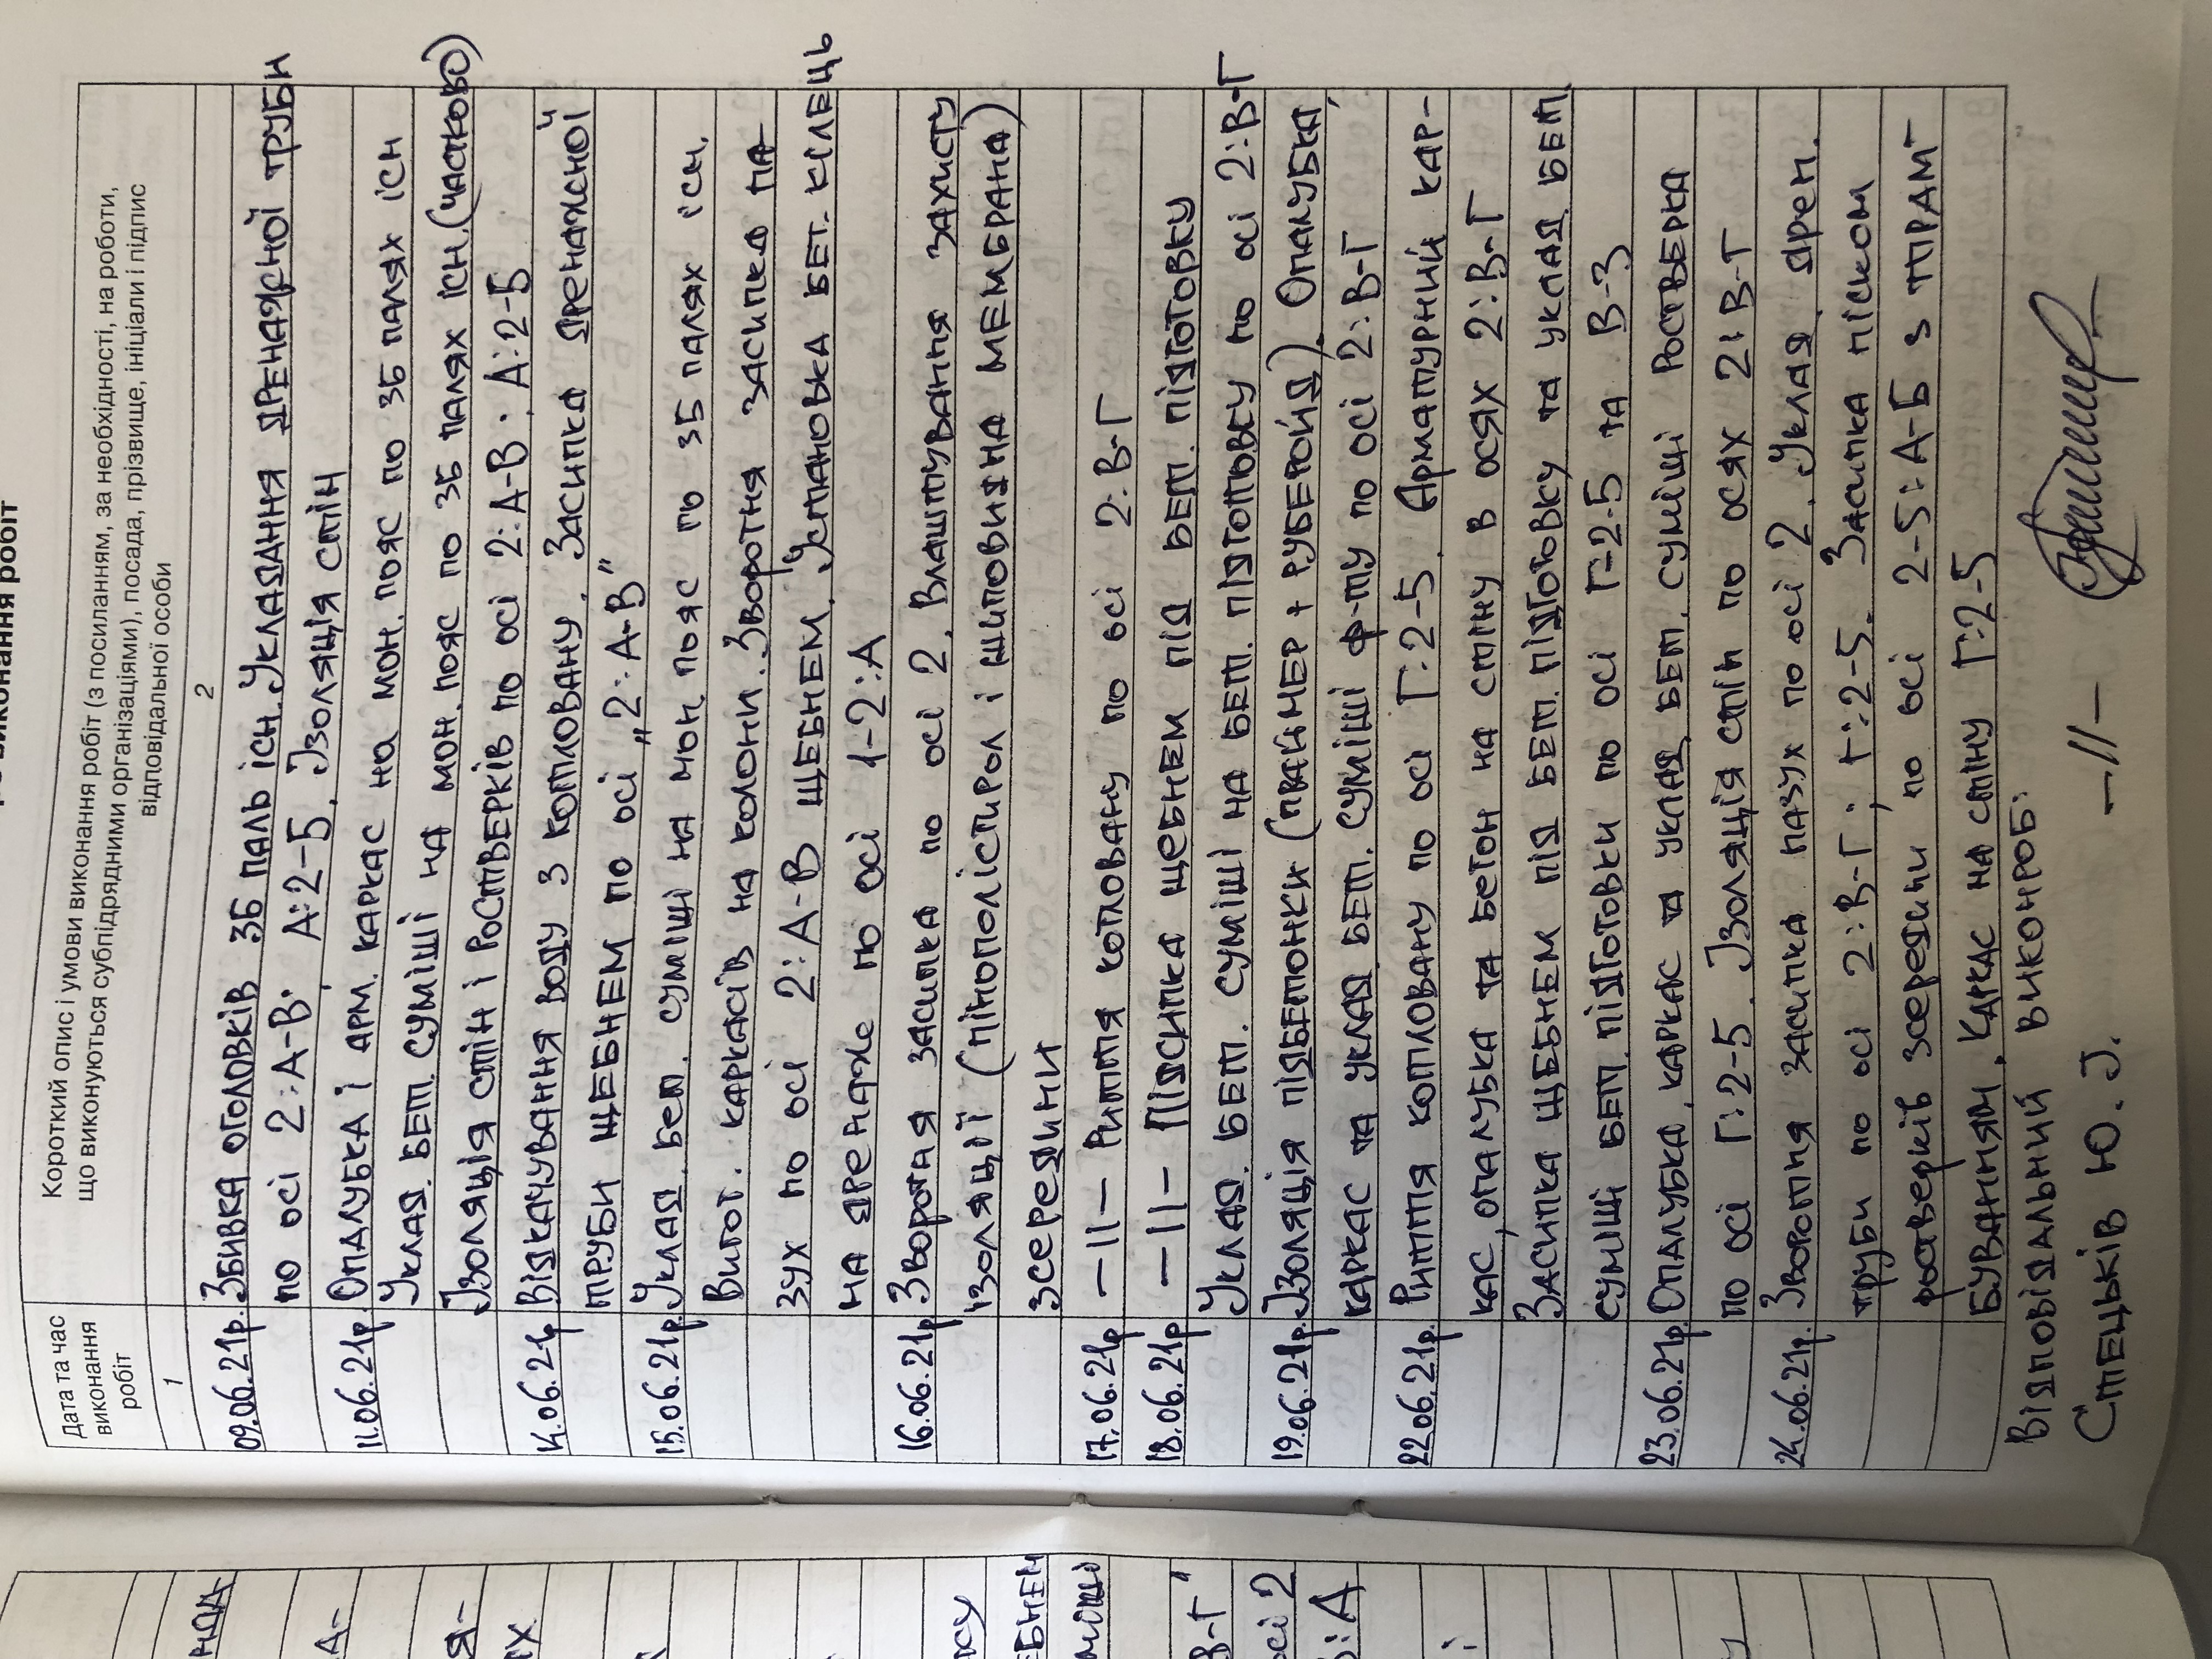 виконання робіт
Дата та час
виконання
робіт
Короткий опис і умови виконання робіт (з посиланням, за необхідності, на роботи,
що виконуються субпідрядними організаціями), посада, прізвище, ініціали і підпис
відповідальної особи
1
2
09.06.21р. Збивка оголовків ЗБ паль існ. Укладання дренажної труби
по осі 2:А-В; А:2-5. Ізоляція стін
11.06.21р. Опалубка і арм. каркас на мон. пояс по ЗБ палях існ
Уклад. бет. суміші на мон. пояс по ЗБ палях існ. (частково)
Ізоляція стін і Ростверків по осі 2:А-В. А:2-Б
14.06.21р Відкачування воду з котловану. Засипка дренажної
труби щебнем по осі „2:А-В"
15.06.21р. Уклад. бет. суміші на мон. пояс по ЗБ палях існ.
Вигот. каркасів на колони. Зворотня засипка па-
зух по осі 2:А-В щебнем. Установка бет. кілець
на дренаже по осі 1-2:А
16.06.21р. Зворотая засипка по осі 2. Влаштування захисту
ізоляції (пінополістирол і шиповидна мембрана)
зсередини
17.06.21р —11— Риття котловану по осі 2:В-Г
18.06.21р —11— Підсипка щебнем під бет. підготовку
Уклад. бет. суміші на бет. підготовку по осі 2:В-Г
19.06.21р. Ізоляція підбетонки (праймер + рубероїд). Опалубка,
каркас та уклад. бет. суміші ф-ту по осі 2:В-Г
22.06.21р. Риття котловану по осі Г:2-5. Арматурний кар-
кас, опалубка та бетон на стіну в осях 2:В-Г
Засипка щебнем під бет. підготовку та уклад. бет.
суміші бет. підготовки по осі Г-2-5 та В-3
23.06.21р. Опалубка, каркас та уклад. бет. суміші Ростверка
по осі Г:2-5. Ізоляція стін по осях 2:В-Г
24.06.21р. Зворотня засипка пазух по осі 2. Уклад. дрен.
труби по осі 2:В-Г; Г:2-5. Засипка піском
ростверків зсередини по осі 2-5:А-Б з трамб-
буванням. Каркас на стіну Г:2-5
Відповідальний виконроб:
Стецьків Ю. І. —11—
нода
А-
я-
ту
бнем
В-Г"
осі 2
:А